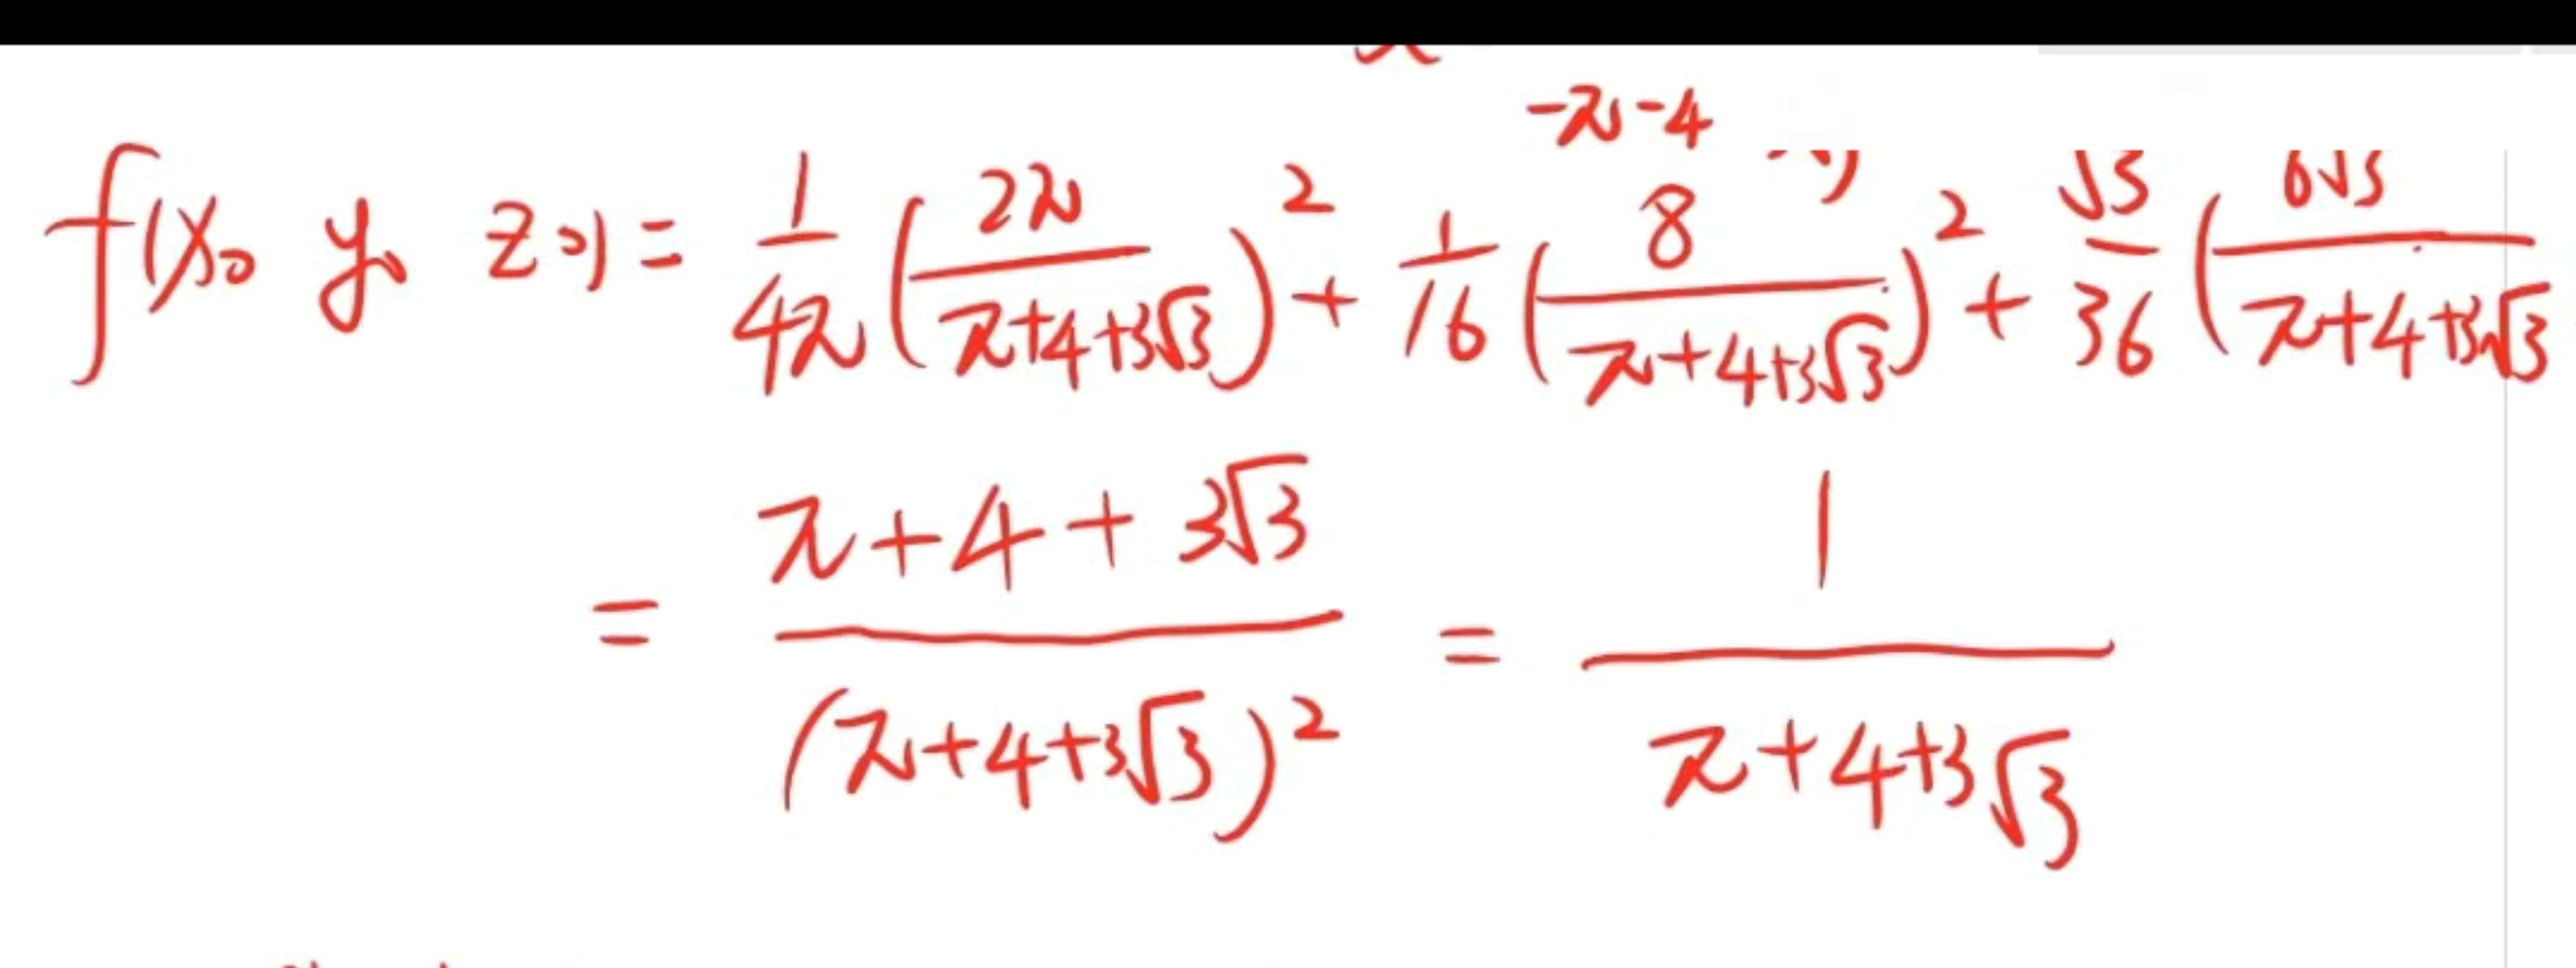 -π-4
f(x₀ y₀ z₀) = 1/4π (2π/(π+4+3√3))² + 1/16 (8/(π+4+3√3))² + √3/36 (6√3/(π+4+3√3
= (π+4+3√3)/(π+4+3√3)² = 1/(π+4+3√3)